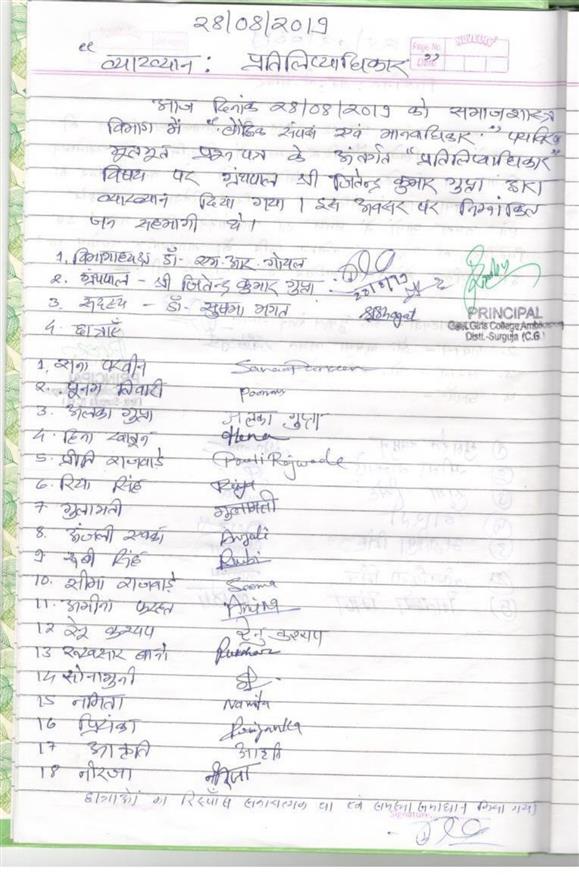 28/08/2019
Page No.
Date
" व्याख्यान : प्रतिलिप्याधिकार "
आज दिनांक 28/08/2019 को समाजशास्त्र
विभाग में "बौद्धिक संपदा एवं मानवाधिकार"
प्रश्न पत्र के अंतर्गत "प्रतिलिप्याधिकार"
विषय पर ग्रंथपाल श्री जितेन्द्र कुमार गुप्ता द्वारा
व्याख्यान दिया गया । इस अवसर पर निम्नांकित
जन सहभागी थे ।
1. विभागाध्यक्ष डॉ- एम.आर गोयल
2. ग्रंथपाल - श्री जितेन्द्र कुमार गुप्ता :
3. सदस्य - डॉ- सुषमा भगत SBhagat
4. छात्राएँ
PRINCIPAL
Govt. Girls College, Ambikapur
Distt.-Surguja (C.G.)
1. सना परवीन Sanam Parveen
2. पूनम तिवारी Poonam
3. अलका गुप्ता अलका गुप्ता
4. हिना खातून Hena
5. प्रीति राजवाड़े Preeti Rajwade
6. रिया सिंह Riya
7 गुलामती गुलामती
8. अंजली Anjali
9 रूबी सिंह Rubi
10. सीमा राजवाड़े Seema
11. अमीना
12 रेनु कश्यप रेनु कश्यप
13 रूखसार बानो Rukhsar
14 सोनामुनी
15 नमिता Namita
16 प्रियंका Priyanka
17 आकृति आकृति
18 नीरजा नीरजा
छात्राओं का रिस्पॉंस सकारात्मक था एवं समस्या समाधान किया गया
Signature